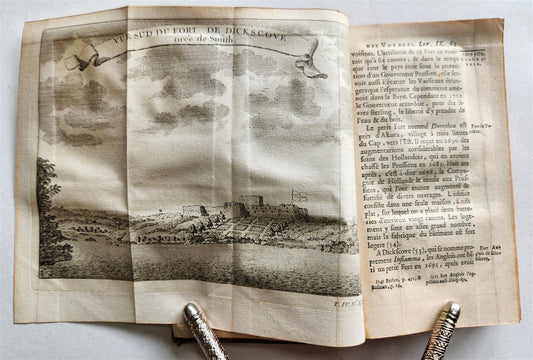 VUE SUD DU FORT DE DICKSCOVE
tirée de Smith.
DES VOYAGES. LIV. IX. 63
voisines. L'artillerie de ce Fort ne mon-
toit qu'à six canons; & dans le temps
que tout le pays étoit sous la protec-
tion d'un Gouverneur Prussien, elle ser-
voit aussi à écarter les Vaisseaux étran-
gers que l'esperance du commerce ame-
noit dans la Baye. Cependant en
le Gouverneur accordoit, pour dix li-
vres sterling, la liberté d'y prendre de
l'eau & du bois.
Le petit Fort nommé Dorothea est
près d'Akora, village à trois lieues
du Cap, vers l'Est. Il reçut en 1690 des
augmentations considerables par les
soins des Hollandois, qui en avoient
chassé les Prussiens en 1683. Huit ans
après, c'est-à-dire 1698, la Compagnie
de Hollande le rendit aux Prus-
siens, qui l'ont encore augmenté &
fortifié de divers ouvrages. L'édifice
consiste dans une seule maison, à toit
plat, sur lequel on a placé deux batte-
ries d'environ vingt canons. Les loge-
mens y sont en assez grand nombre,
mais la fabrique du bâtiment est fort
legere (54).
A Dickscove (55), qui se nomme pro-
prement Infiamma, les Anglois ont bâ-
ti un petit Fort en 1691, après avoir
Fort An-
glois de Dic-
(54) Barbot, p. 432; &
Bosman, p.
(55) Les Anglois l'ap-
pellent aussi